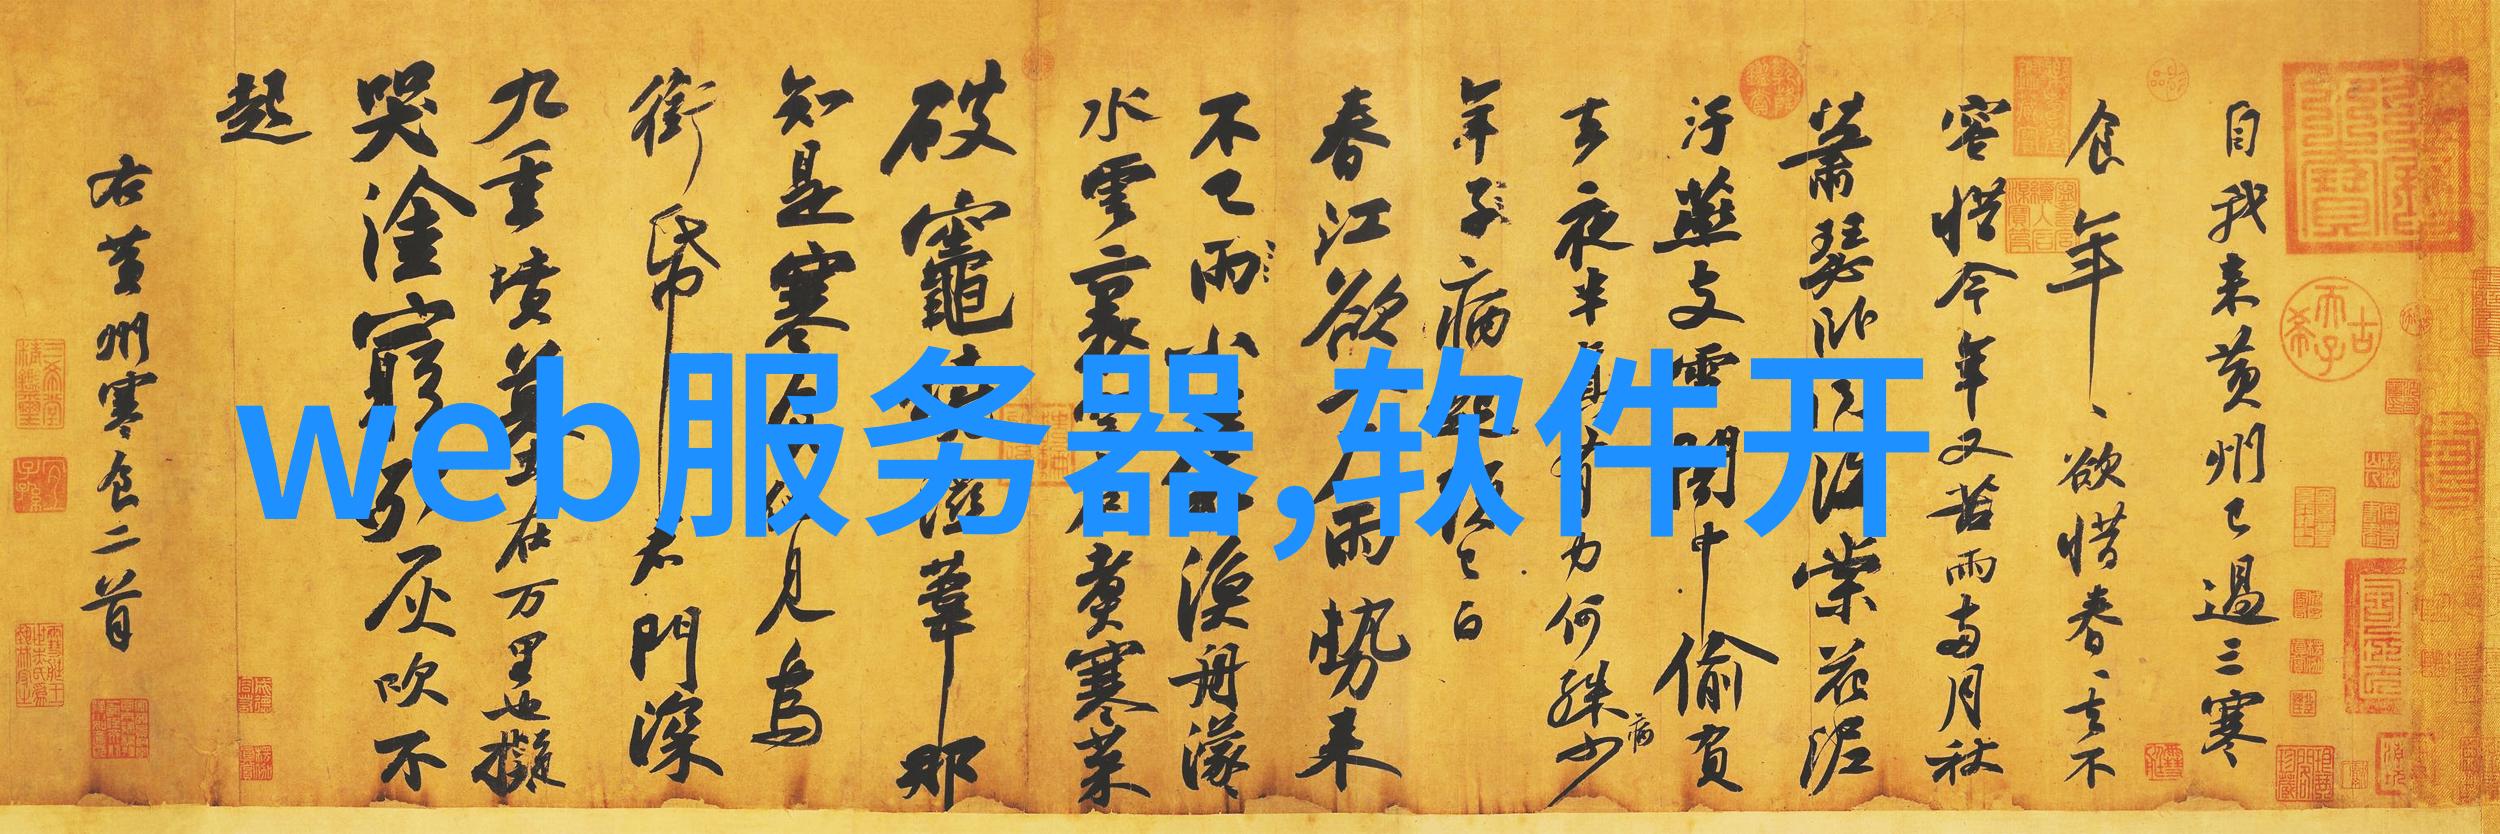 自我来黄州已過三寒
食年年欲惜春春去不
容惜今年又苦雨两月秋
萧瑟卧闻海棠花泥
汙燕支雪闇中偷負
去夜半真有力何殊少
年子病起頭已白
春江欲入户雨势来
不已雨小屋如漁舟濛
水雲裏空庖煮寒菜
破竈燒濕葦那
知是寒食但見烏
銜帋君門深
九重墳墓在万里也擬
哭塗窮死灰吹不
起
右黄州寒食二首
web服务器,软件开